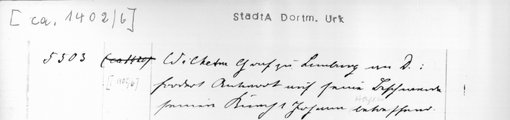 [ca. 1402/6]
StadtA Dortm. Urk
5303 (ca 1110) Wilhelm Graf zu Limburg an D.:
[1402/6] fordert Antwort auf seine Beschwerde
seinen Knecht Johann betreffend.